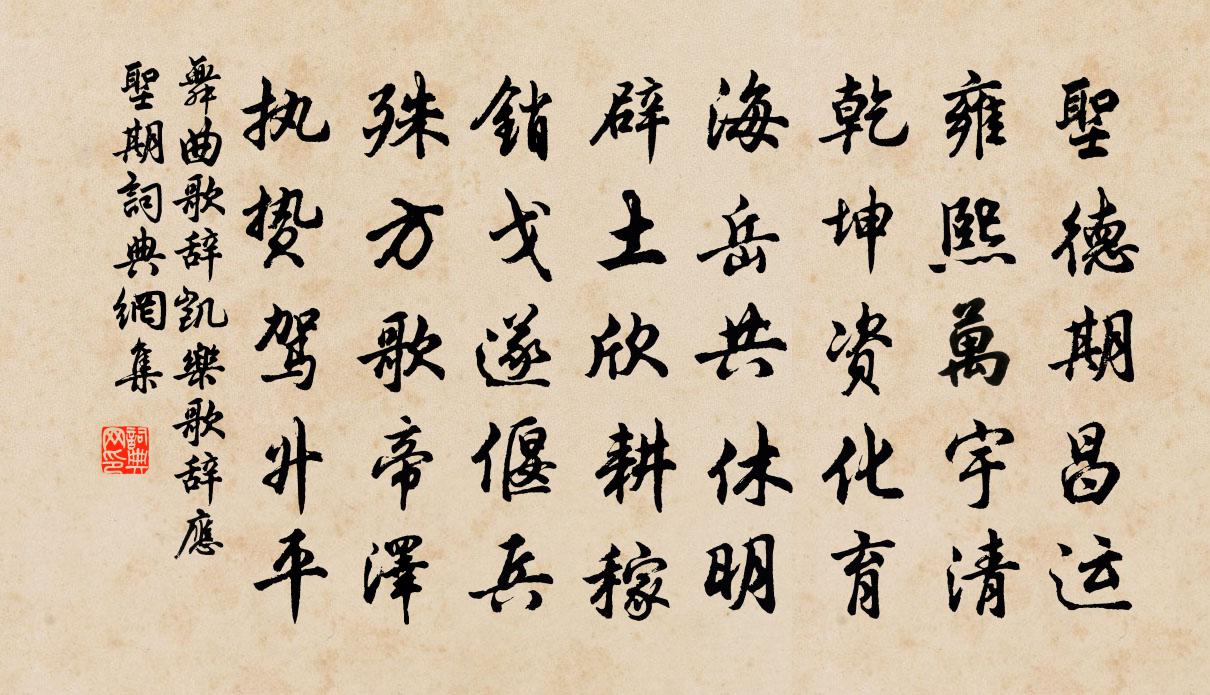 聖德期昌运
雍熙萬宇清
乾坤资化育
海岳共休明
辟土欣耕稼
銷戈遂偃兵
殊方歌帝澤
执贽驾升平
舞曲歌辞凯樂歌辞應
聖期詞典網集
詞典
网印